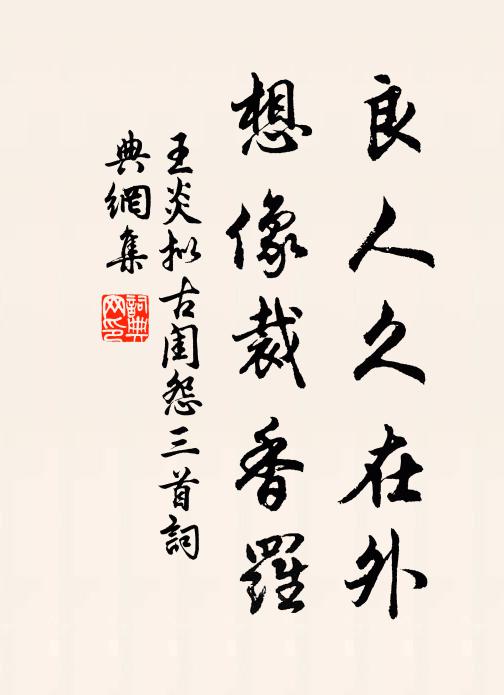 良人久在外
想像裁香羅
王炎拟古闺怨三首詞
典網集
詞典
网印